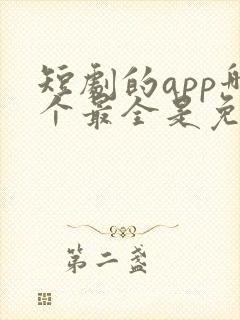 短劇的app哪
个最全是免
第二盏